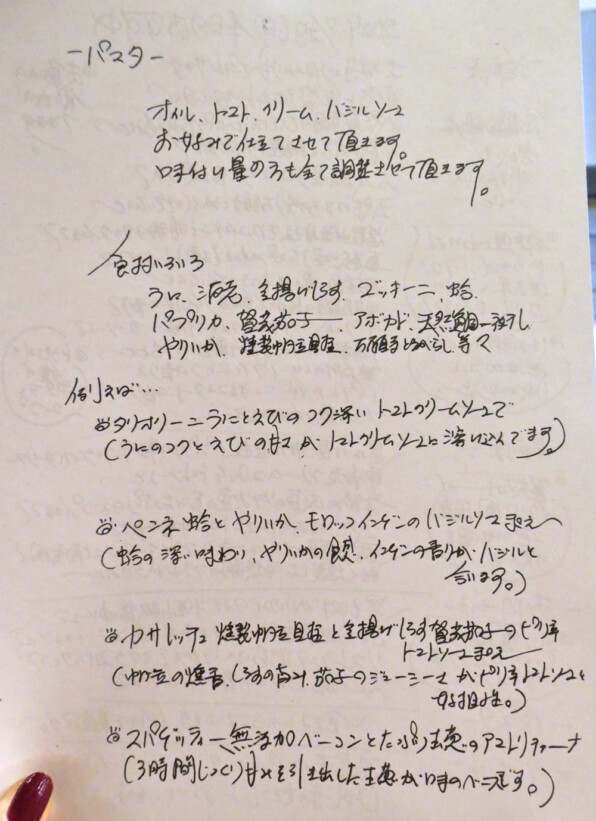 ーパスター
オイル、トマト、クリーム、バジルソース
お好みで仕立てさせて頂きます。
味付け、量の方も全て調整させて頂きます。
食材いろいろ
うに、海老、釜揚げしらす、ズッキーニ、蛤、
パプリカ、賀茂茄子、アボカド、天然真鯛一夜干し
やりいか、燻製帆立貝柱、万願寺とうがらし、等々
例えば…
タリオリーニ うにとえびのコク深いトマトクリームソースで
(うにのコクとえびの甘さがトマトクリームソースに溶け込んでます。)
ペンネ 蛤とやりいか、モロッコインゲンのバジルソースまぜ
(蛤の深い味わい、やりいかの食感、インゲンの香りがバジルと
合います。)
カサレッチェ 燻製帆立貝柱と釜揚げしらす 賀茂茄子のピリ辛
トマトソースまぜ
(帆立の燻香、しらすの旨み、茄子のジューシーさがピリ辛トマトソースと
好相性。)
スパゲッティー 無添加ベーコンとたっぷり玉葱のアマトリチャーナ
(3時間じっくり甘みを引き出した玉葱が味のベースです。)